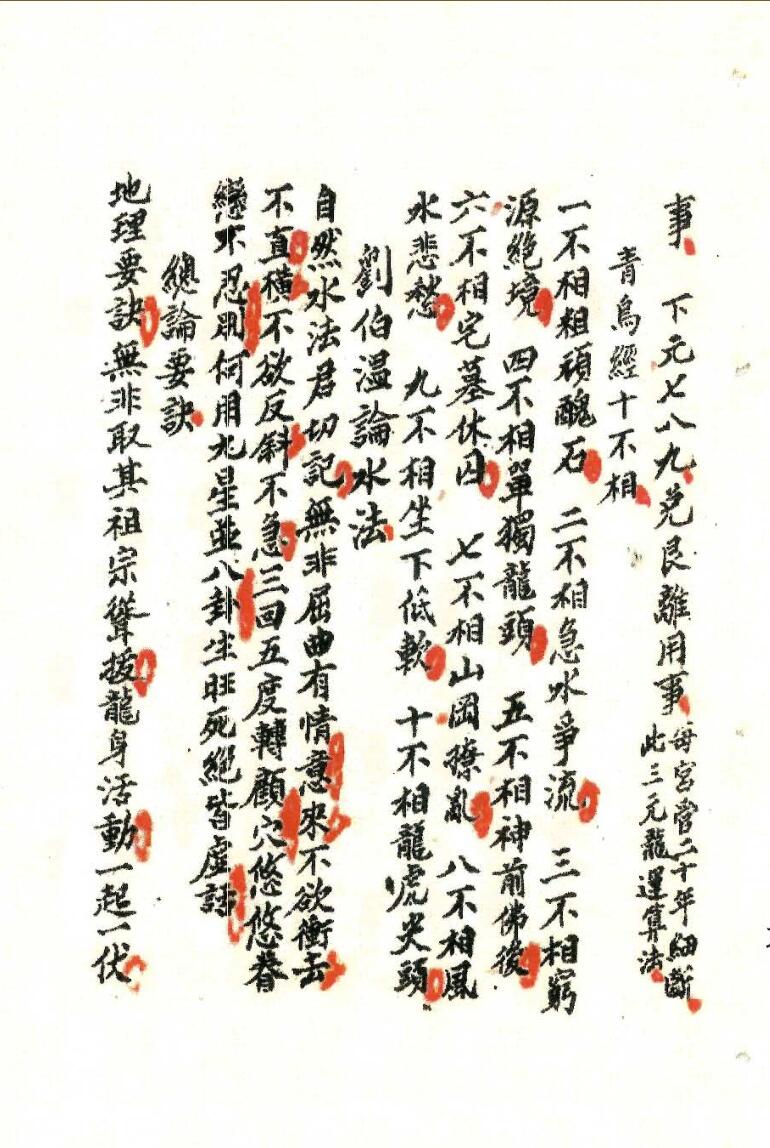 事 下元七八九兌艮離用事 每宮管二十年細斷
此三元龍運算法
青鳥經十不相
一不相粗頑醜石 二不相急水爭流 三不相窮
源絕境 四不相單獨龍頭 五不相神前佛後
六不相宅墓休囚 七不相山岡撩亂 八不相風
水悲愁 九不相坐下低軟 十不相龍虎尖頭
劉伯溫論水法
自然水法君切記無非屈曲有情意來不欲衝去
不直橫不欲反斜不急三回五度轉顧穴悠悠眷
戀不忍別何用九星並八卦生旺死絕皆虛話
總論要訣
地理要訣無非取其祖宗聳拔龍身活動一起一伏